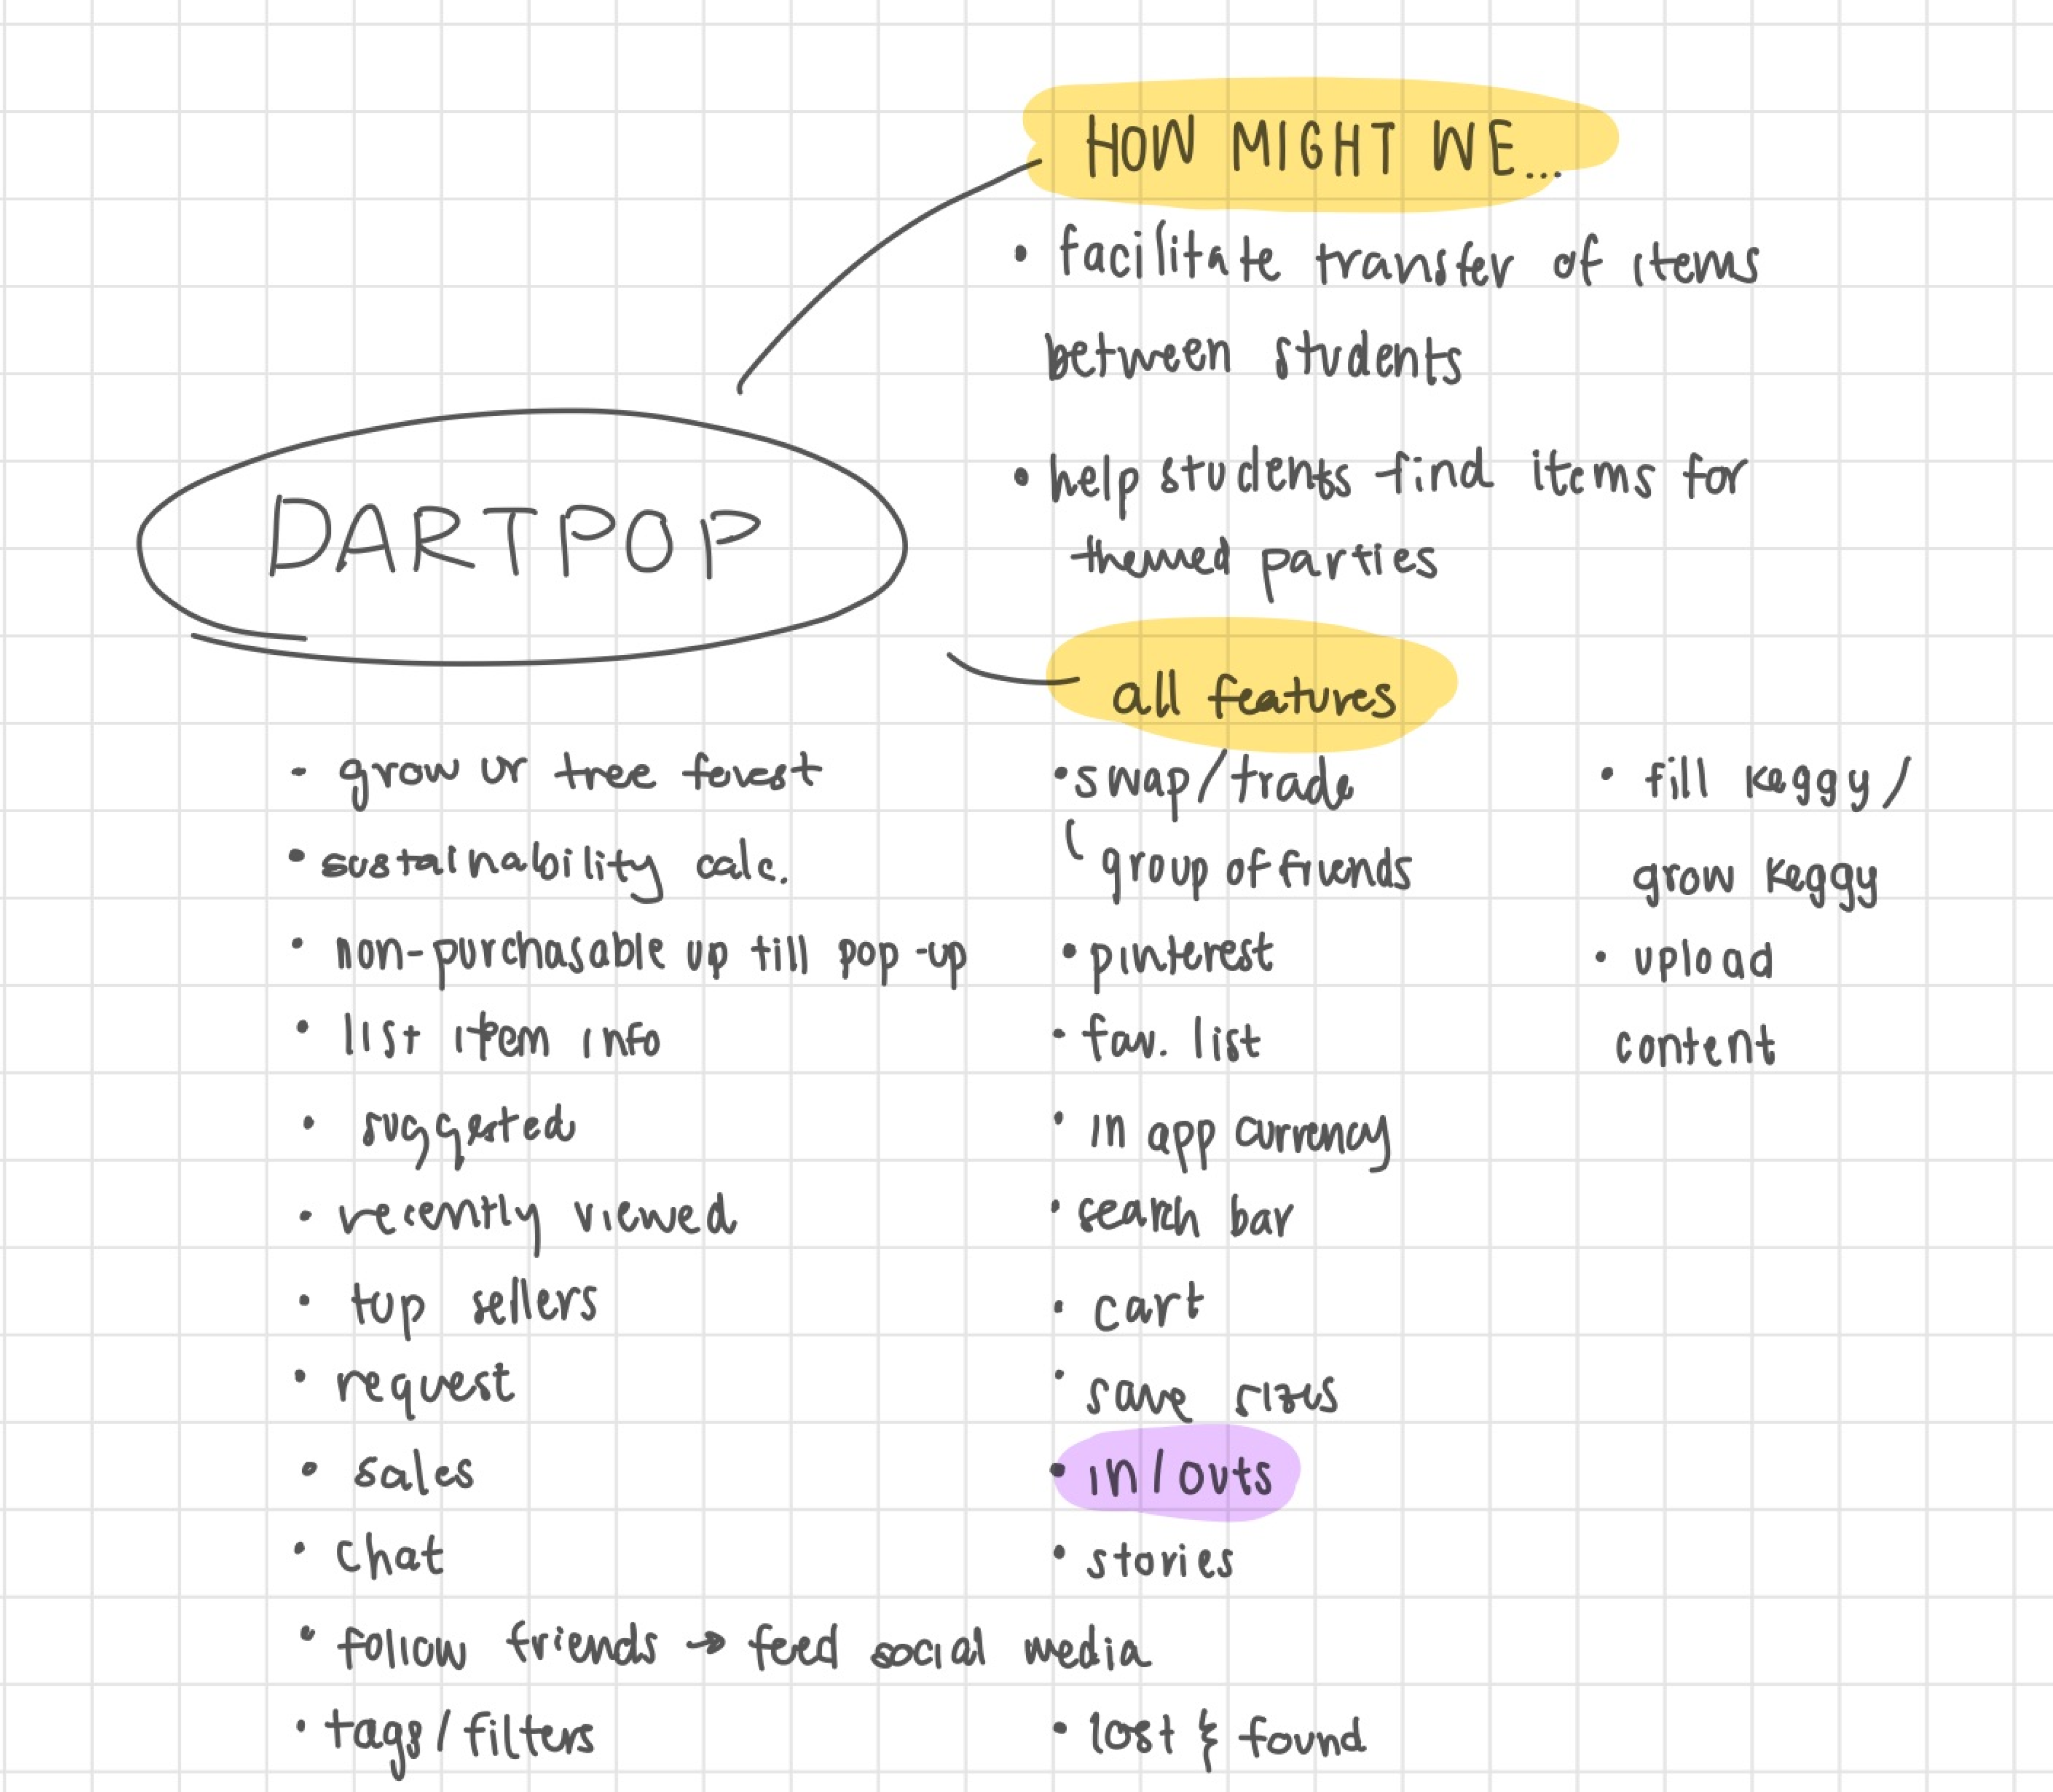 HOW MIGHT WE...
• facilitate transfer of items
between students
• help students find items for
themed parties
DARTPOP
all features
- grow ur tree forest
• sustainability calc.
• non-purchasable up till pop-up
• list item info
• suggested
• recently viewed
• top sellers
• request
• sales
• chat
• follow friends → feed social media
• tags/filters
• swap/trade
group of friends
• pinterest
• fav. list
• in app currency
• search bar
• cart
• save sizes
• in/outs
• stories
• lost & found
• fill keggy/
grow keggy
• upload
content